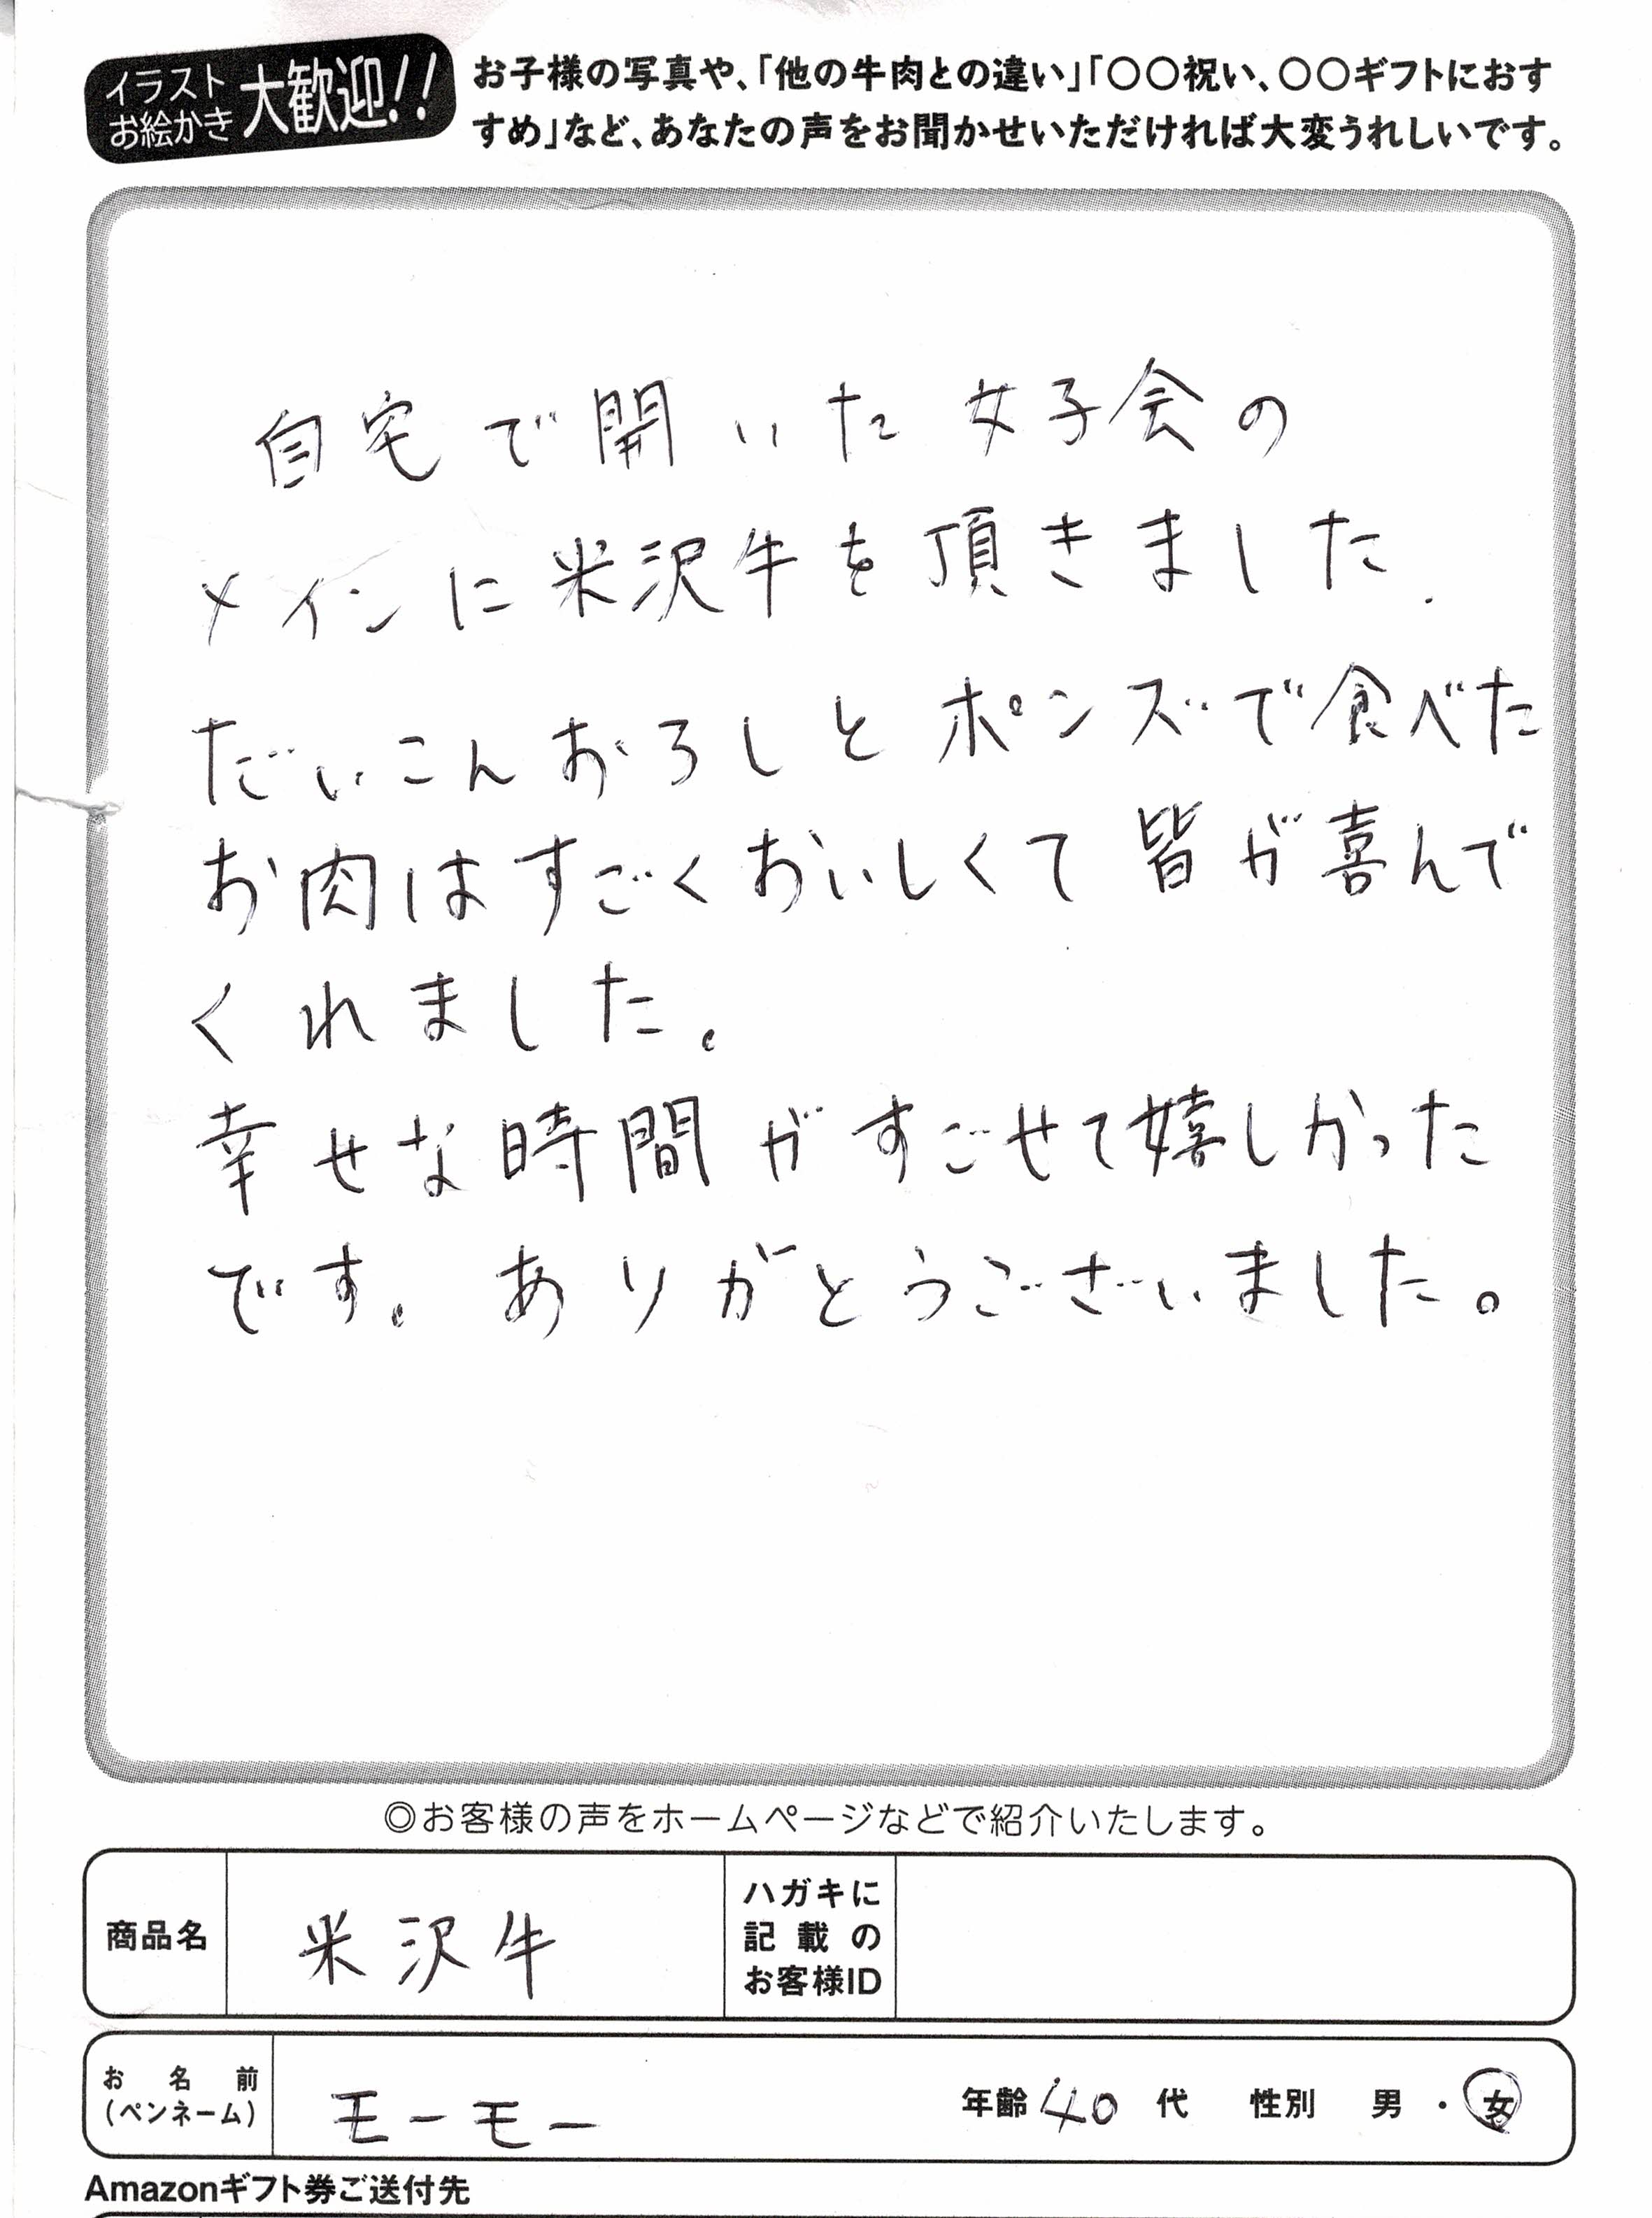 イラスト
お絵かき
大歓迎!!
お子様の写真や、「他の牛肉との違い」「〇〇祝い、〇〇ギフトにおす
すめ」など、あなたの声をお聞かせいただければ大変うれしいです。
自宅で開いた女子会の
メインに米沢牛を頂きました.
だいこんおろしとポンズで食べた
お肉はすごくおいしくて皆が喜んで
くれました。
幸せな時間がすごせて嬉しかった
です。ありがとうございました。
◎お客様の声をホームページなどで紹介いたします。
商品名 米沢牛
ハガキに
記載の
お客様ID
お名前
(ペンネーム)
モーモー 年齢 40 代 性別 男・女
Amazonギフト券ご送付先